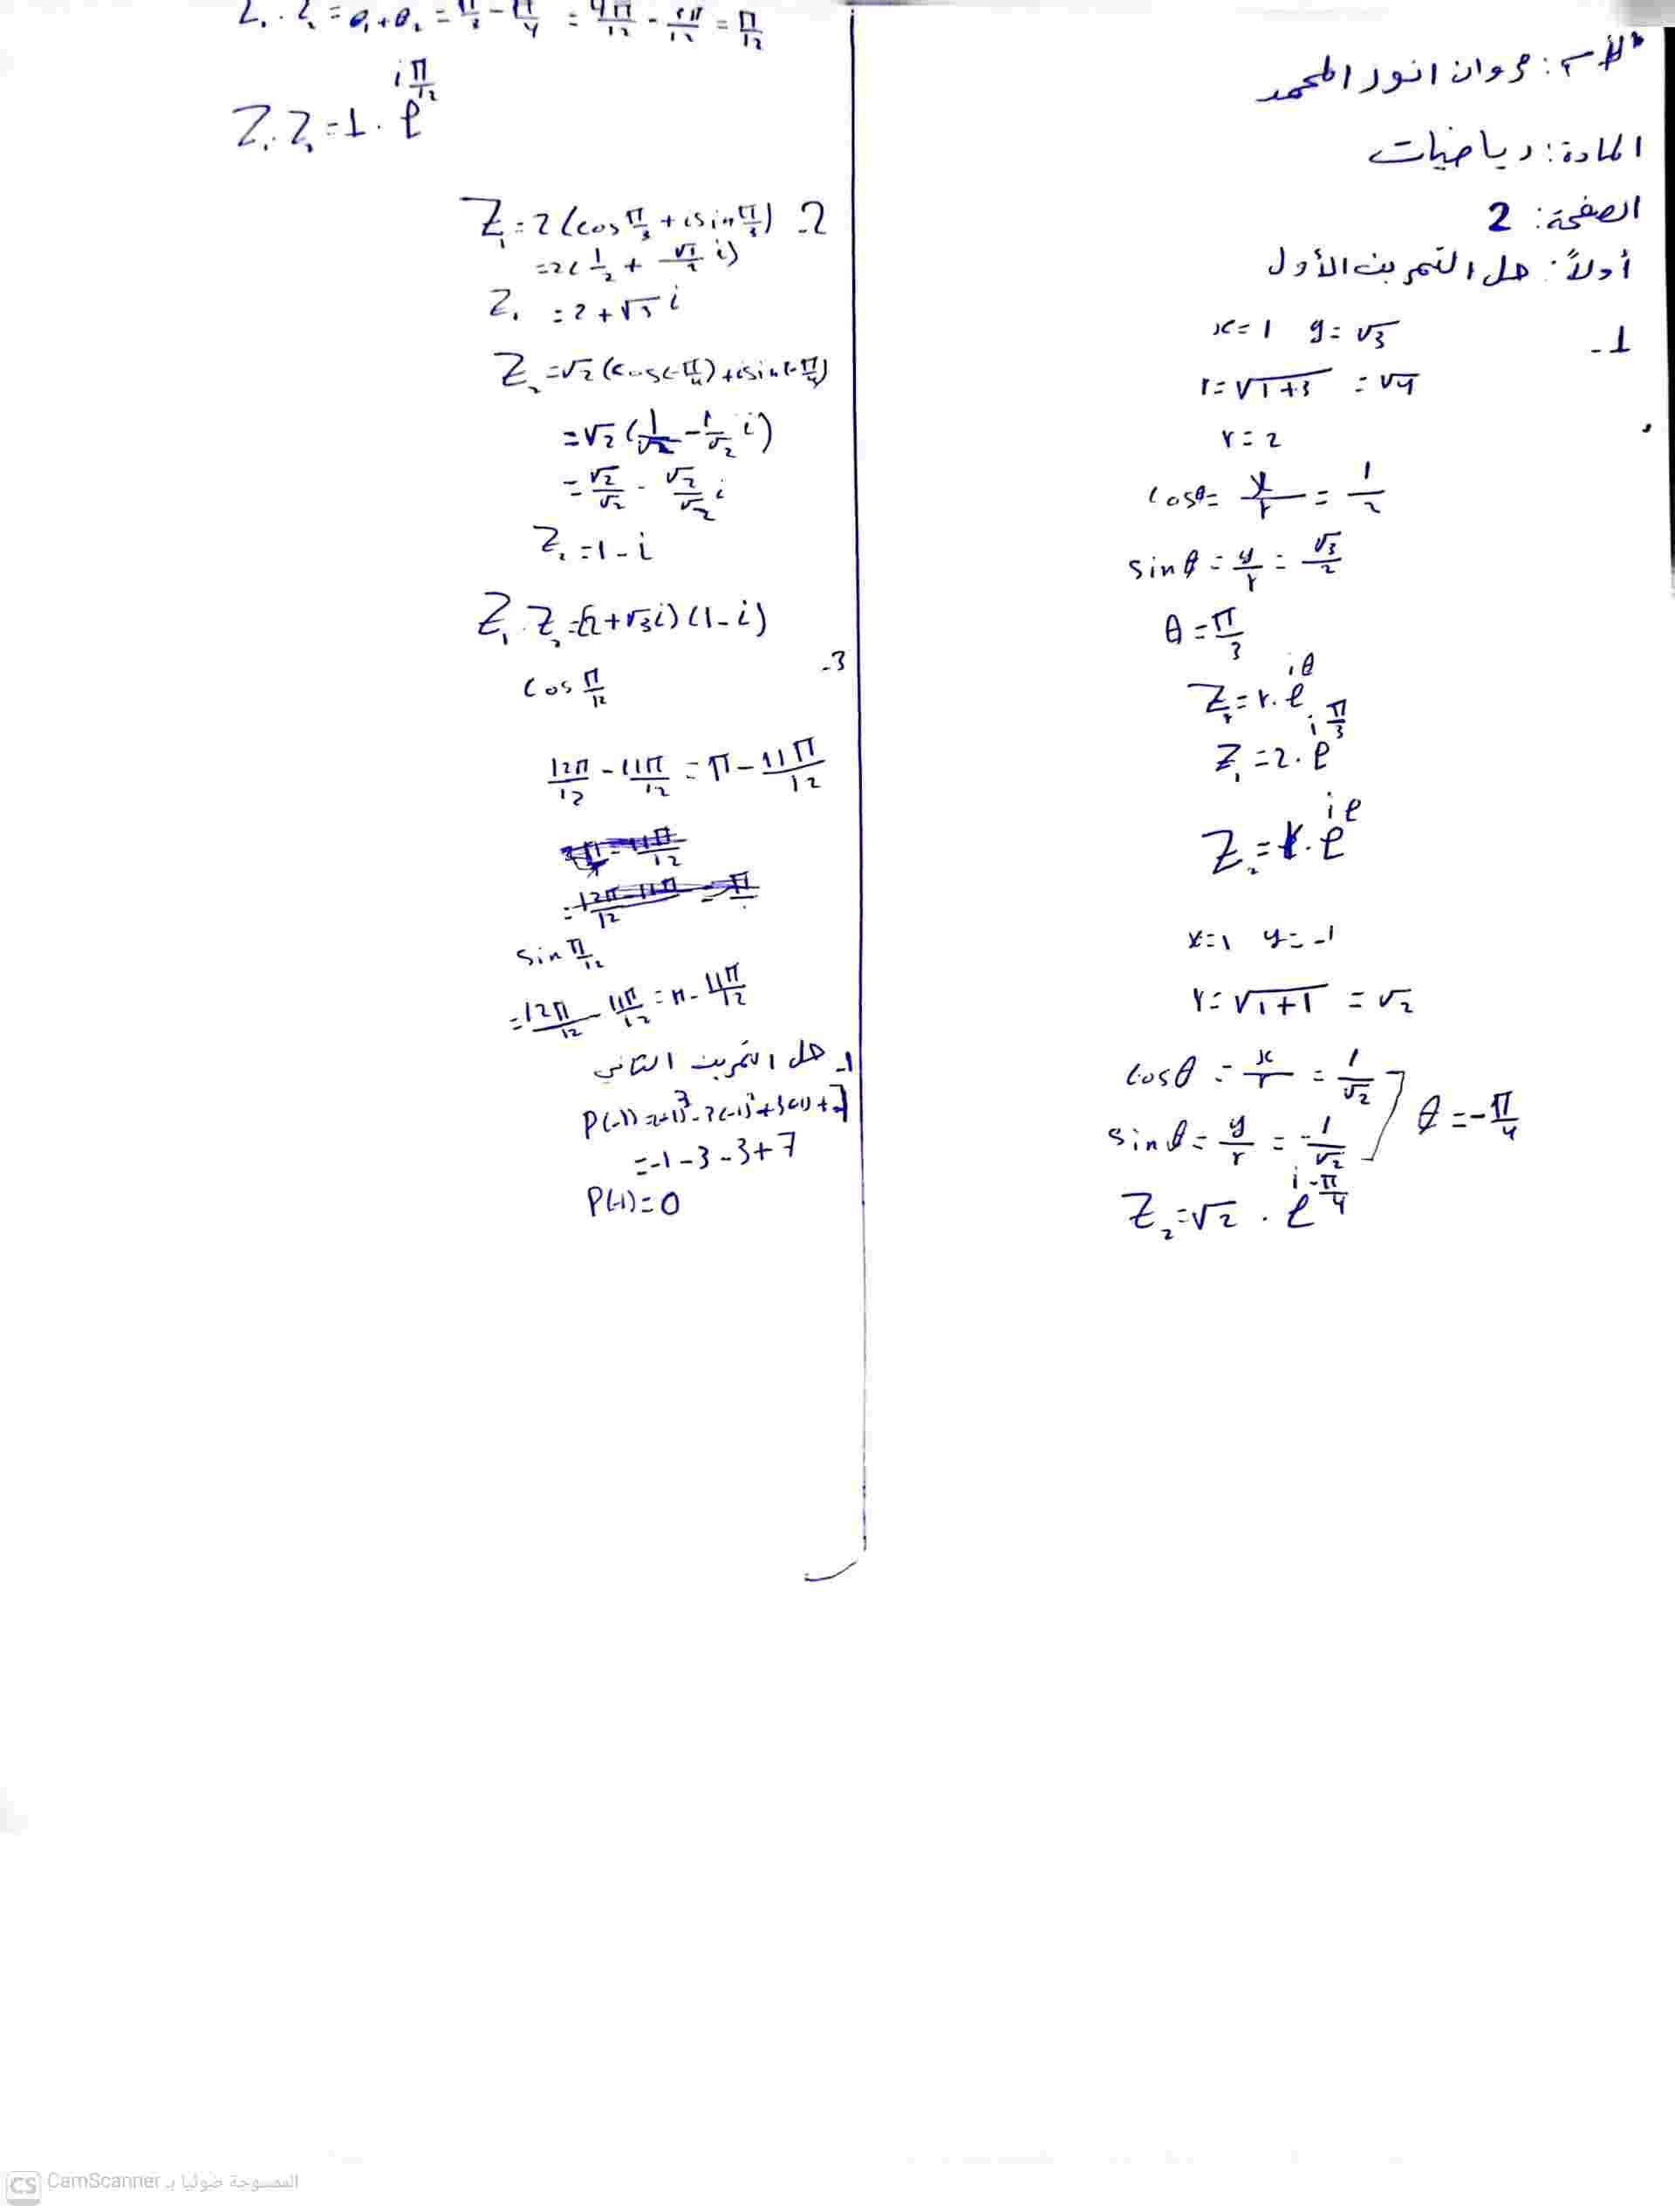 الاسم: مروان انور المحمد
المادة: رياضيات
الصفحة: 2
أولاً: حل التمرين الأول
1- x=1 y=√3
r=√1+3 =√4
r=2
cosθ= x/r = 1/2
sinθ= y/r = √3/2
θ=π/3
Z₁=r.e^iθ
Z₁=2.e^iπ/3
Z₂=r.e^iθ
x=1 y=-1
r=√1+1 =√2
cosθ = x/r = 1/√2
sinθ= y/r = -1/√2
θ=-π/4
Z₂=√2 . e^i-π/4
Z₁.Z₂ = θ₁+θ₂ = π/3 - π/4 = 4π/12 - 3π/12 = π/12
Z₁.Z₂=1.e^iπ/12
2- Z₁=2(cos π/3 + isin π/3)
=2(1/2 + √3/2 i)
Z₁ =2+√3 i
Z₂=√2(cos(-π/4)+isin(-π/4))
=√2(1/√2 - 1/√2 i)
=√2/√2 - √2/√2 i
Z₂=1-i
Z₁.Z₂=(2+√3i)(1-i)
3-
cos π/12
12π/12 - 11π/12 = π - 11π/12
sin π/12
=12π/12 - 11π/12 = π - 11π/12
حل التمرين الثاني
1-
=-1-3-3+7
P(-1)=0
CS CamScanner الممسوحة ضوئيا بـ